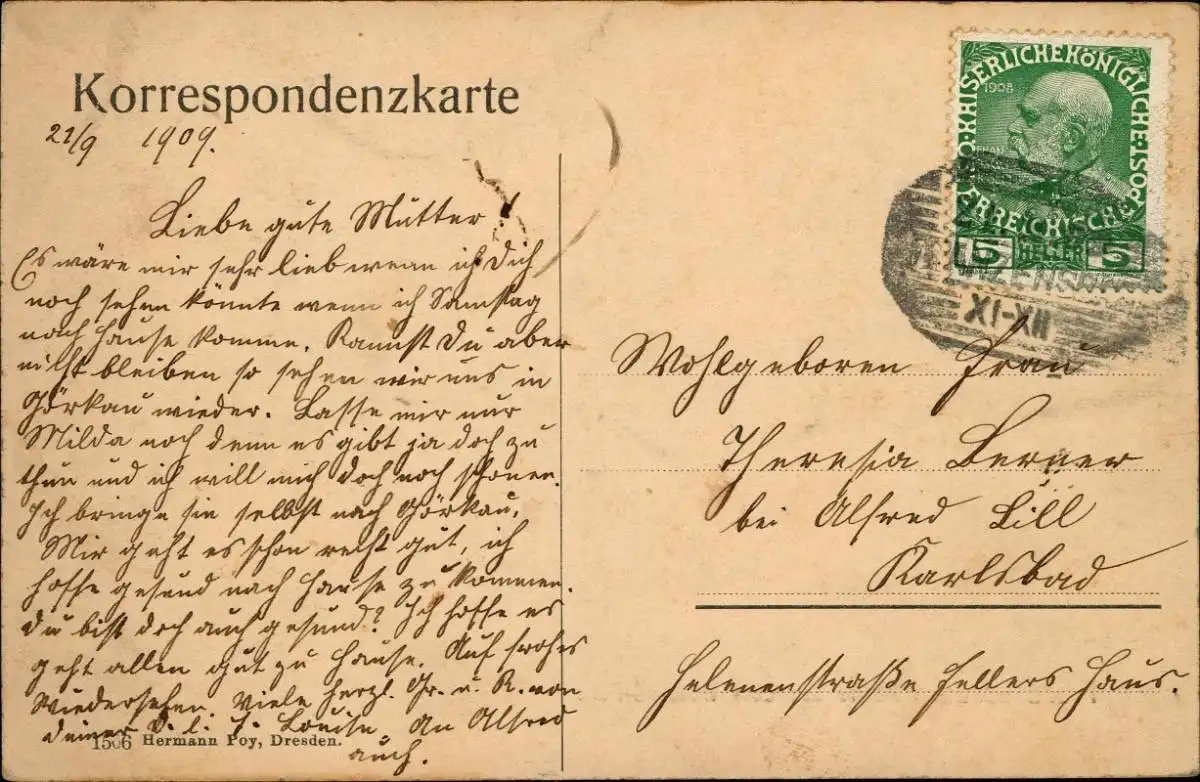 Korrespondenzkarte
21/9 1909.
Liebe gute Mutter!
Es wäre mir sehr lieb wenn ich Dich
noch sehen könnte wenn ich Samstag
nach Hause komme. Kannst Du aber
nicht bleiben so sehen wir uns in
Görkau wieder. Lasse mir nur
Milda noch denn es gibt ja doch zu
thun und ich will mich doch noch schonen.
Ich bringe sie selbst nach Görkau.
Mir geht es schon recht gut, ich
hoffe gesund nach Hause zu kommen.
Du bist doch auch gesund? Ich hoffe es
geht allen gut zu Hause. Auf frohes
Wiedersehen. Viele herzl. Gr. u. K. von
deiner D. l. T. Louise. An Alfred
auch.
1506 Hermann Poy, Dresden.
KAISERLICHEKÖNIGLICHE
ÖSTERREICHISCHE POST
1908
5 HELLER 5
XI-XII
Wohlgeboren Frau
Theresia Berner
bei Alfred Lill
Karlsbad
Helenenstraße Fellers Haus.